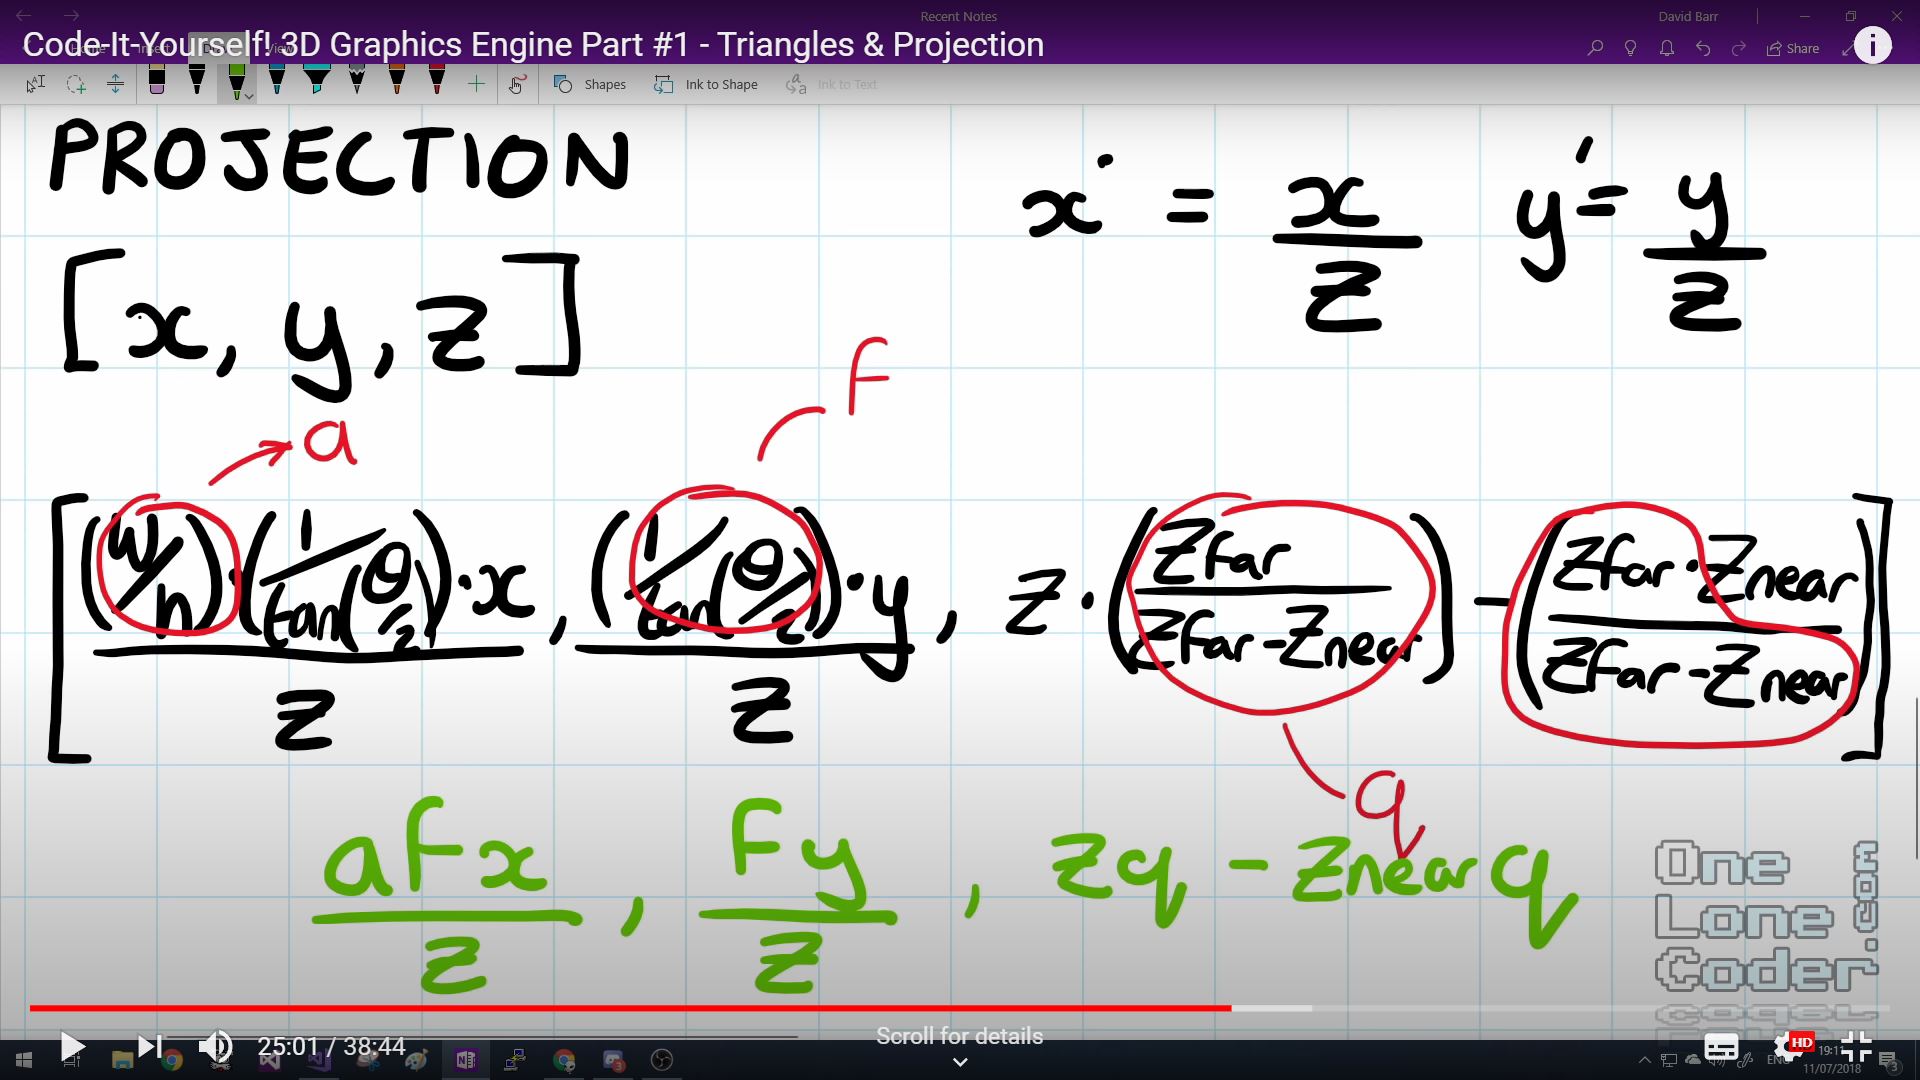 Recent Notes
David Barr
Code-It-Yourself! 3D Graphics Engine Part #1 - Triangles & Projection
Share
Shapes
Ink to Shape
Ink to Text
PROJECTION
x' = x/z y' = y/z
[x, y, z]
a
F
[(w/h)·(1/tan(θ/2))·x / z, (1/tan(θ/2))·y / z, z·(Zfar / Zfar-Znear) - (Zfar·Znear / Zfar-Znear)]
q
aFx/z, Fy/z, zq - Znear q
One
Lone
Coder
.com
25:01 / 38:44
Scroll for details
HD
11/07/2018
3